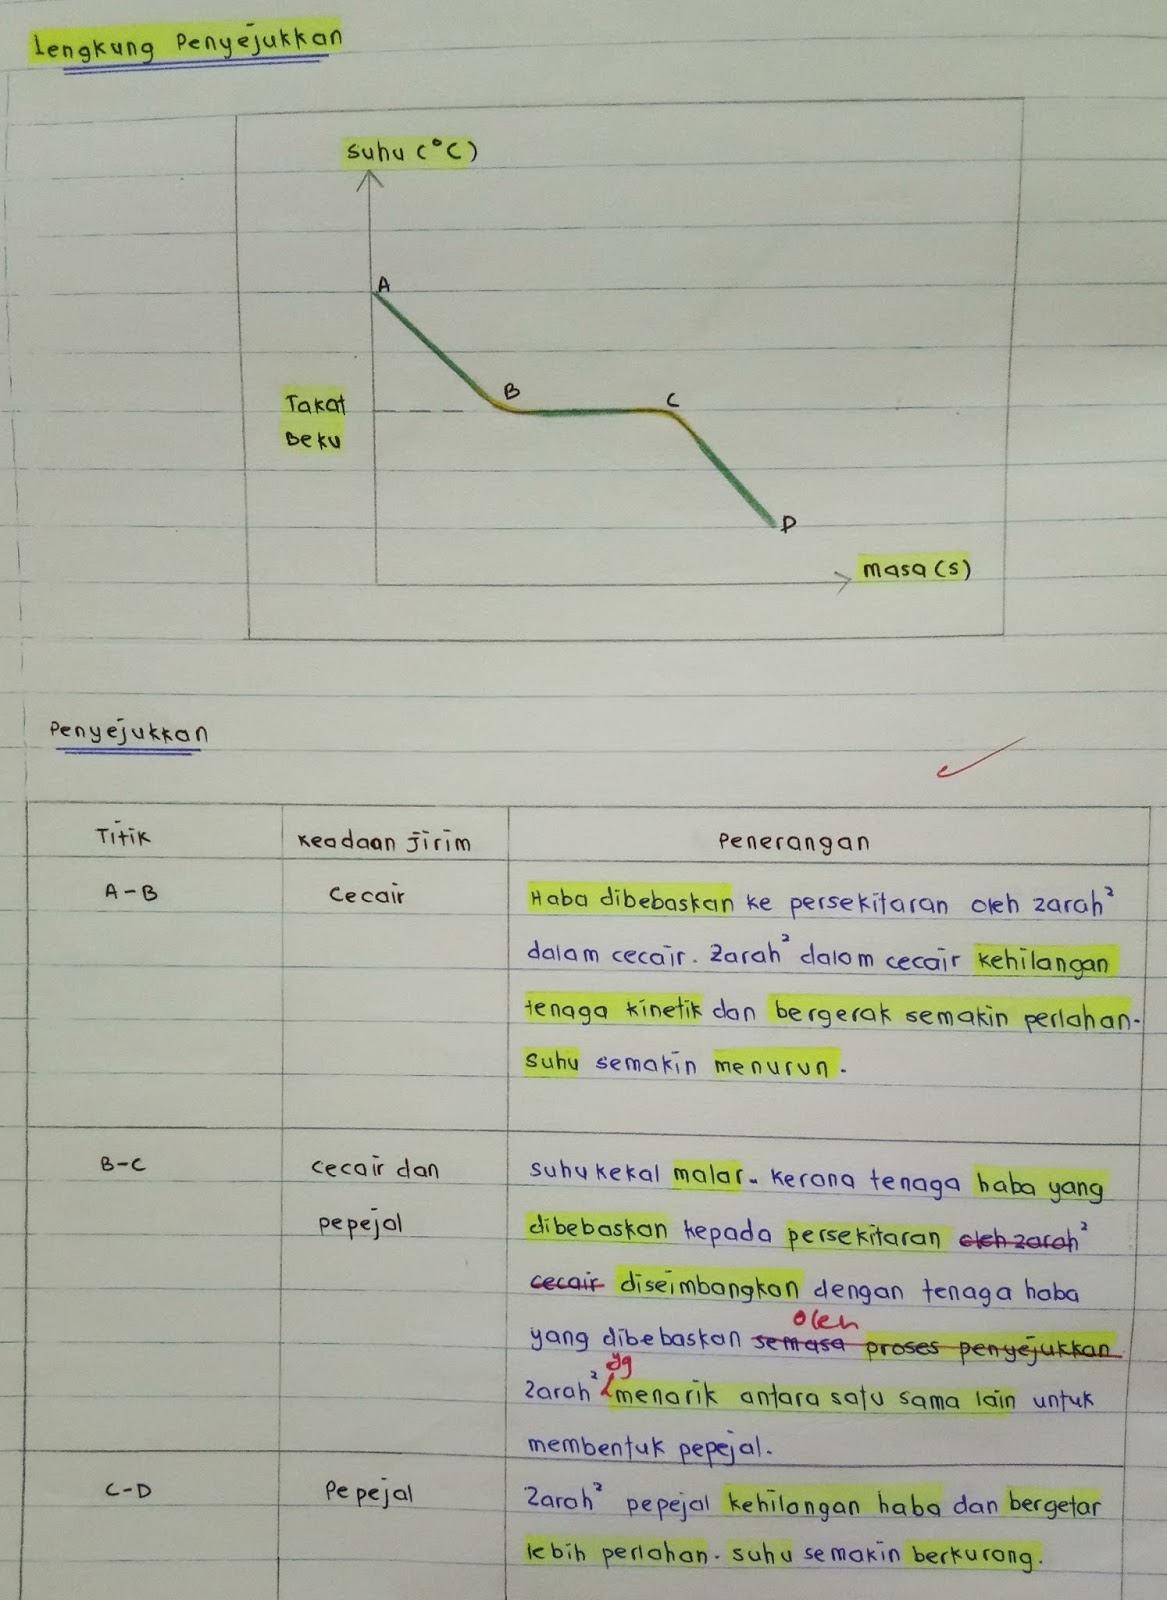 Lengkung Penyejukkan
Suhu (°C)
A
B
C
Takat
Beku
D
masa (s)
Penyejukkan
Titik Keadaan jirim Penerangan
A-B Cecair Haba dibebaskan ke persekitaran oleh zarah²
dalam cecair. Zarah² dalam cecair kehilangan
tenaga kinetik dan bergerak semakin perlahan.
Suhu semakin menurun.
B-C cecair dan suhu kekal malar. Kerana tenaga haba yang
pepejal dibebaskan kepada persekitaran oleh zarah²
cecair diseimbangkan dengan tenaga haba
oleh
yang dibebaskan semasa proses penyejukkan
yg
Zarah² menarik antara satu sama lain untuk
membentuk pepejal.
C-D Pepejal Zarah² pepejal kehilangan haba dan bergetar
lebih perlahan. suhu semakin berkurang.